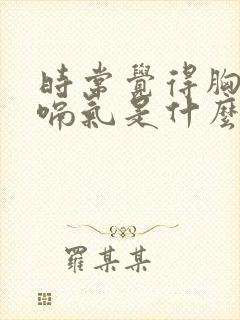 時常覺得胸
喘氣是什麼
羅某某